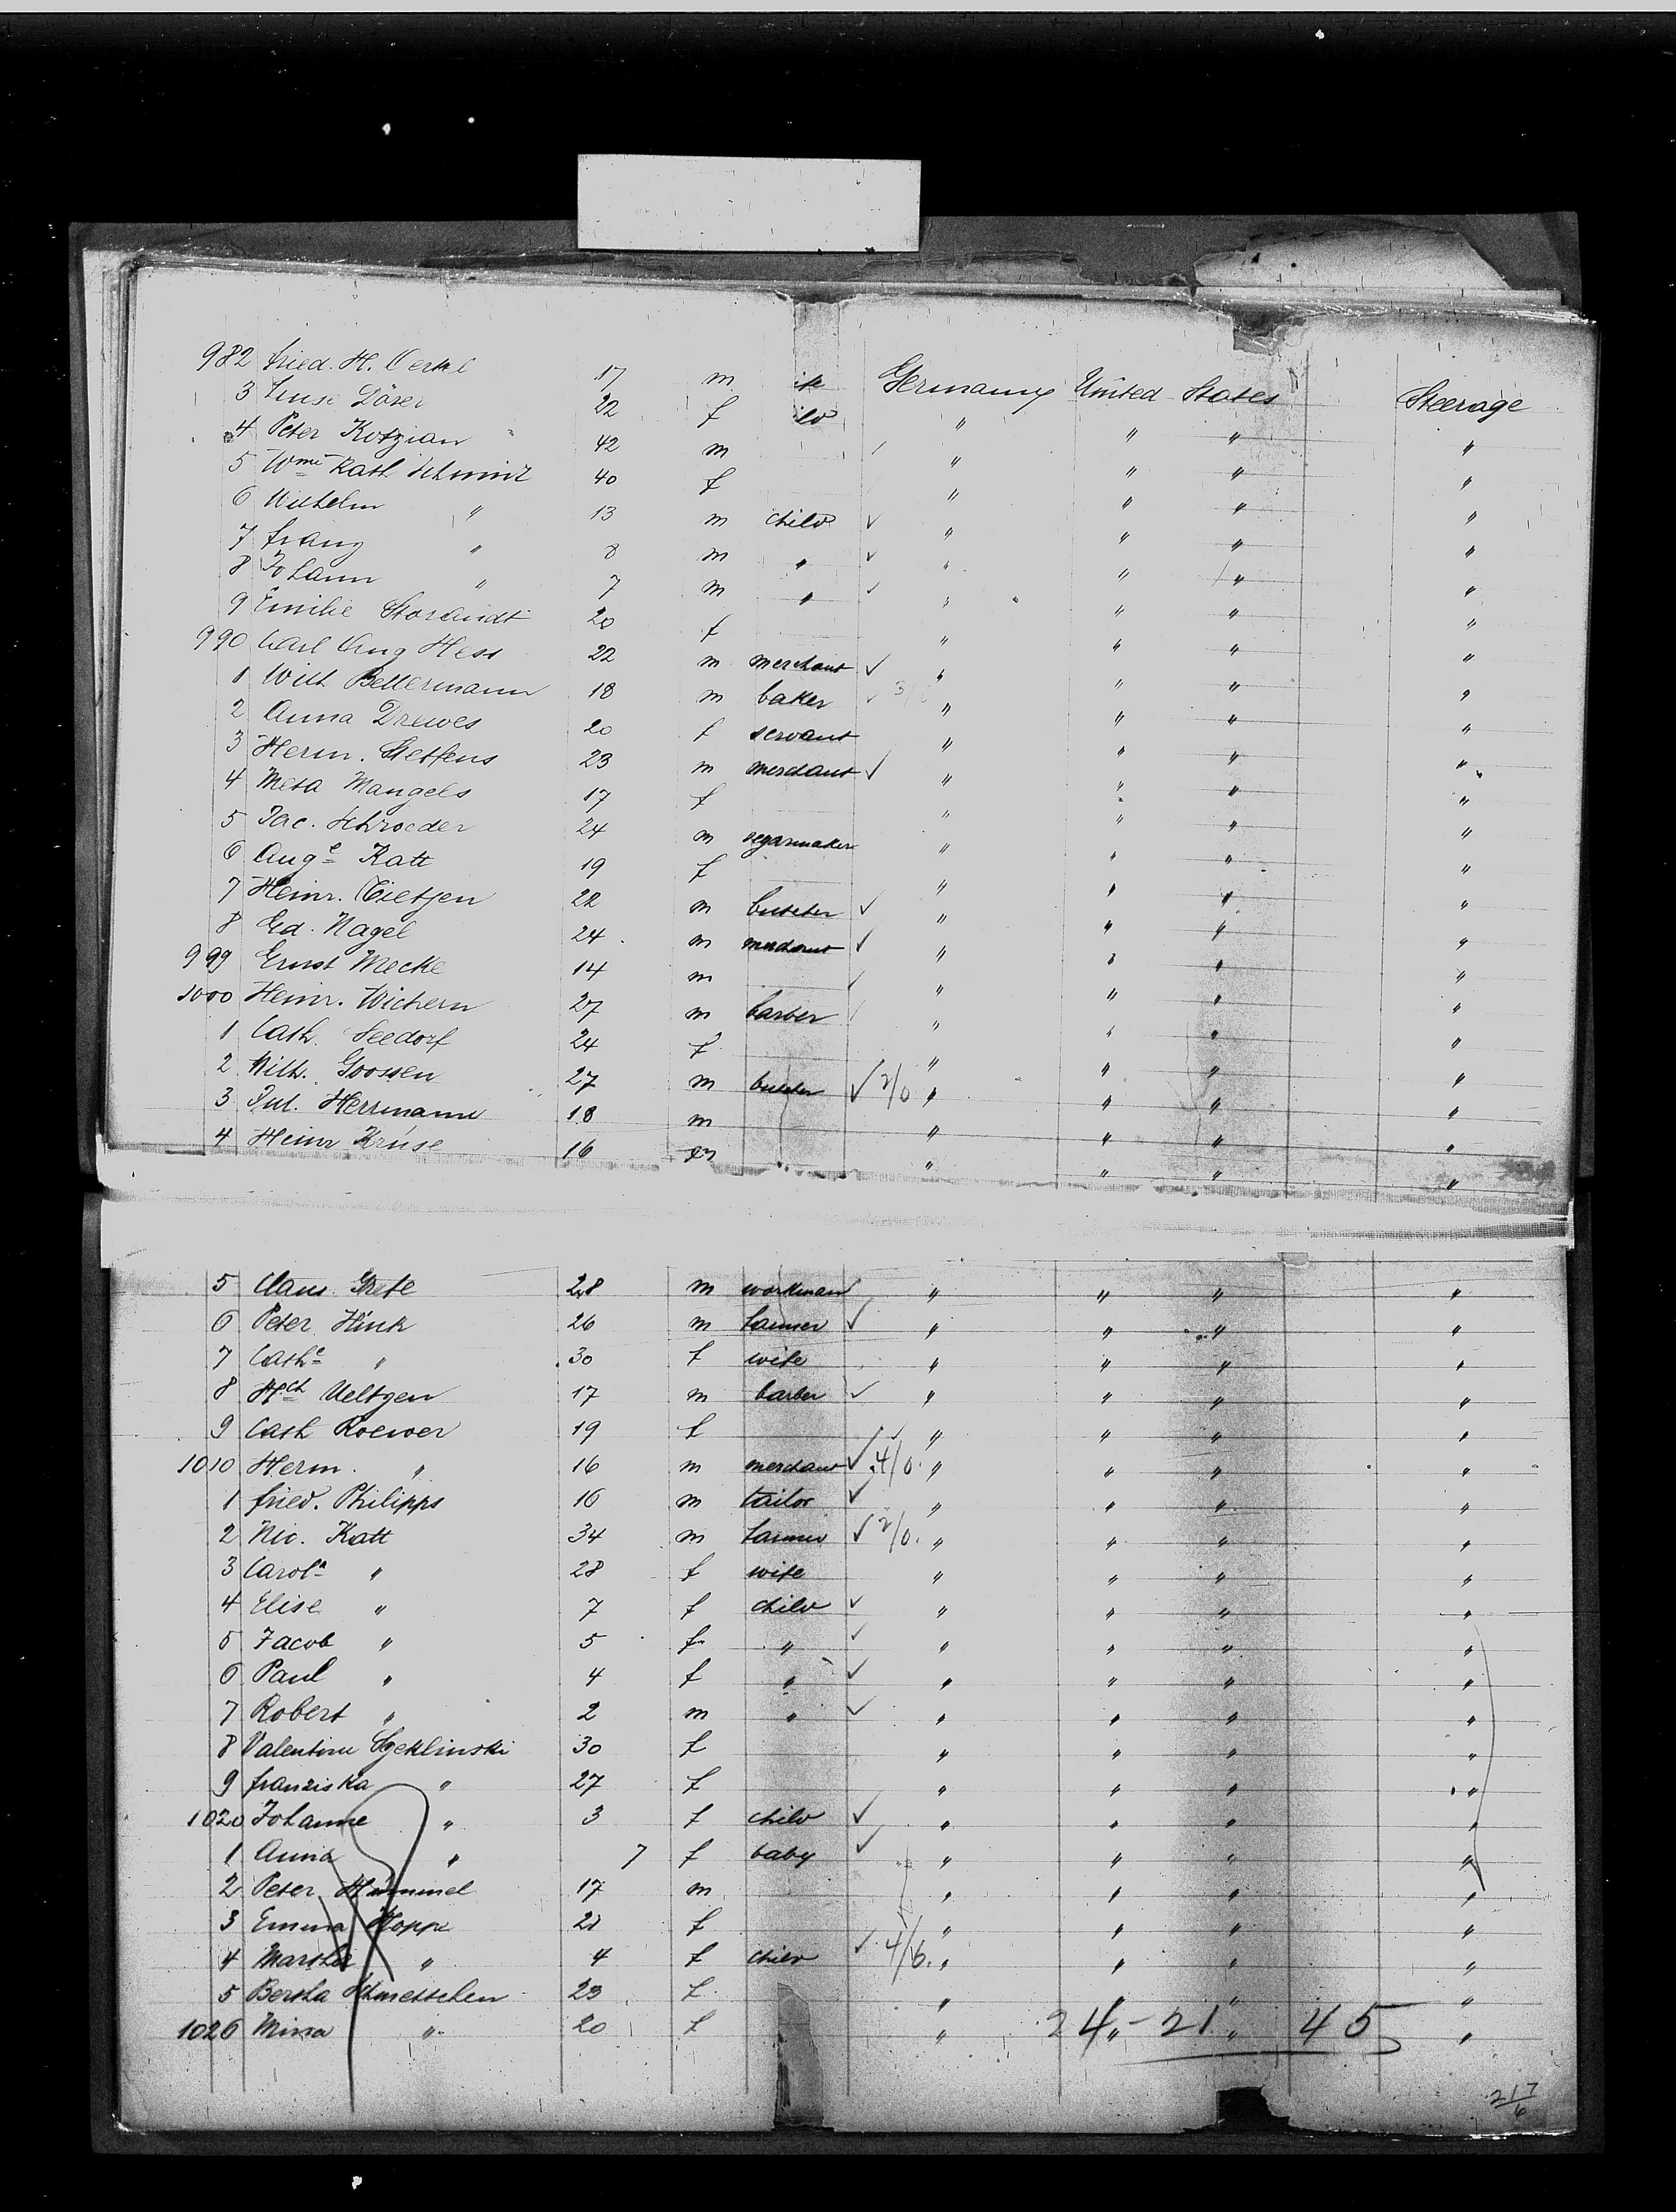 982 Fried. H. Oertel 17 m Germany United States Steerage
3 Döser 22 f " " " "
4 Peter Kotzian 42 m " " " "
5 Wwe Kath Schmitz 40 f " " " "
6 Wilhelm " 13 m child " " " "
7 Franz " 8 m " " " " "
8 Johann " 7 m " " " " "
9 Emilie Storandt 20 f " " " "
990 Carl Aug Hess 22 m merchant " " " "
1 Wilh Bellermann 18 m baker " " " "
2 Anna Drewes 20 f servant " " " "
3 Herm. Steffens 23 m merchant " " " "
4 Meta Mangels 17 f " " " "
5 Jac. Schroeder 24 m segarmaker " " " "
6 Auge Katt 19 f " " " "
7 Heinr. Tietjen 22 m butcher " " " "
8 Ed. Nagel 24 m merchant " " " "
999 Ernst Mecke 14 m " " " "
1000 Heinr. Wichern 27 m barber " " " "
1 Cath. Seedorf 24 f " " " "
2 Wilh. Goossen 27 m butcher 2/0 " " " "
3 Jul. Herrmann 18 m " " " "
4 Heinr Kruse 16 m " " " "
5 Claus Grefe 28 m workman " " " "
6 Peter Hink 26 m farmer " " " "
7 Cathe " 30 f wife " " " "
8 Hch Ueltzen 17 m barber " " " "
9 Cath Roewer 19 f " " " "
1010 Herm. " 16 m merchant 4/0. " " " "
1 Fried. Philipps 16 m tailor " " " "
2 Nic. Katt 34 m farmer 2/0. " " " "
3 Carola " 28 f wife " " " "
4 Elise " 7 f child " " " "
5 Jacob " 5 f " " " " "
6 Paul " 4 f " " " " "
7 Robert " 2 m " " " " "
8 Valentine 30 f " " " "
9 Franziska " 27 f " " " "
1020 Johanne " 3 f child " " " "
1 Anna " 7 f baby " " " "
2 Peter Hummel 17 m " " " "
3 Emma Hoppe 21 f " " " "
4 Martha " 4 f child 4/6. " " " "
5 Bertha 23 f " " " "
1026 Minna " 20 f " " " "
24 - 21 45
217/6